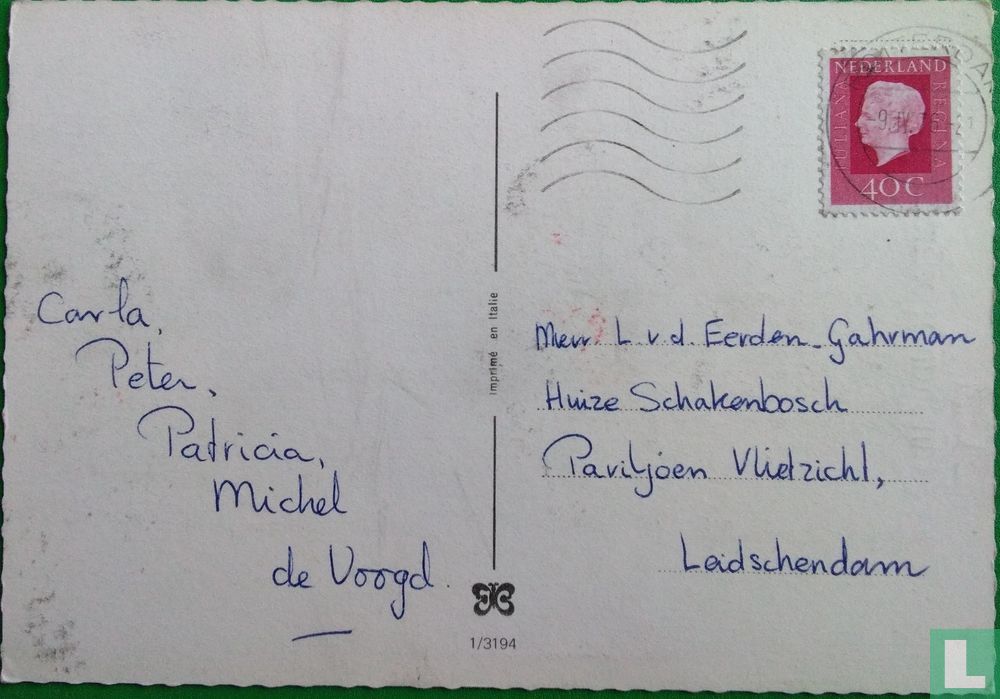 Carla,
Peter,
Patricia,
Michel
de Voogd.
imprimé en Italie
1/3194
NEDERLAND
JULIANA REGINA
40 C
Mevr L. v.d. Eerden-Gahrman
Huize Schakenbosch
Paviljoen Vlietzicht,
Leidschendam
L